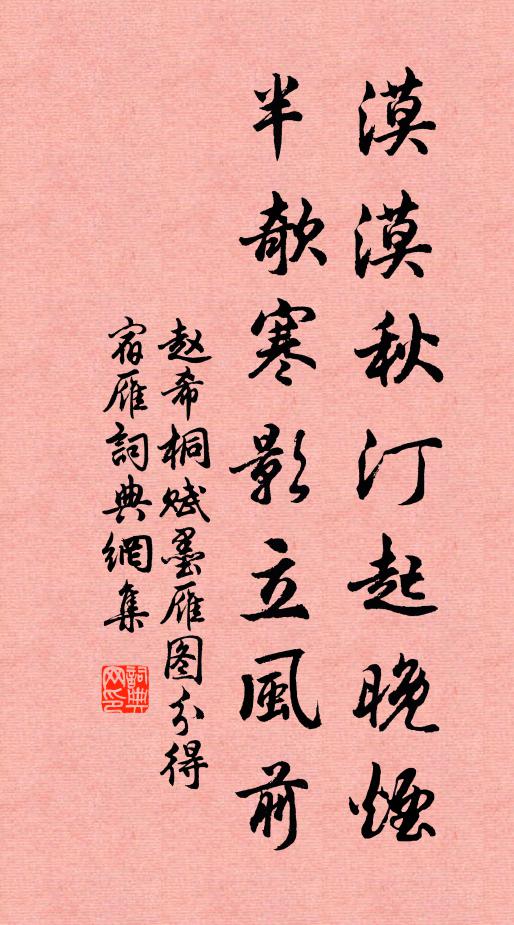 漠漠秋汀起晚煙
半欹寒影立風前
赵希桐賦墨雁图分得
宿雁詞典網集
詞典网印